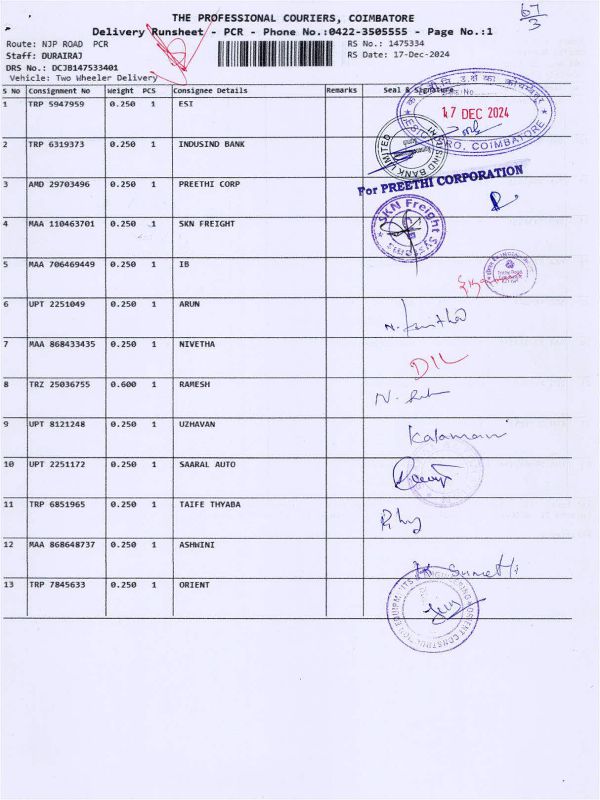 67
3
THE PROFESSIONAL COURIERS, COIMBATORE
Delivery Runsheet - PCR - Phone No.:0422-3505555 - Page No.:1
Route: NJP ROAD PCR RS No.: 1475334
Staff: DURAIRAJ RS Date: 17-Dec-2024
DRS No.: DCJB147533401
Vehicle: Two Wheeler Delivery
S No Consignment No Weight PCS Consignee Details Remarks Seal & Signature
1 TRP 5947959 0.250 1 ESI
17 DEC 2024
COIMBATORE
2 TRP 6319373 0.250 1 INDUSIND BANK
INDUSIND BANK LIMITED
3 AMD 29703496 0.250 1 PREETHI CORP
For PREETHI CORPORATION
4 MAA 110463701 0.250 1 SKN FREIGHT
SKN Freight
5 MAA 706469449 0.250 1 IB
6 UPT 2251049 0.250 1 ARUN
7 MAA 868433435 0.250 1 NIVETHA
DIL
8 TRZ 25036755 0.600 1 RAMESH
9 UPT 8121248 0.250 1 UZHAVAN
Kalamani
10 UPT 2251172 0.250 1 SAARAL AUTO
11 TRP 6851965 0.250 1 TAIFE THYABA
12 MAA 868648737 0.250 1 ASHWINI
13 TRP 7845633 0.250 1 ORIENT
ORIENT CONSTRUCTION EQUIPMENTS